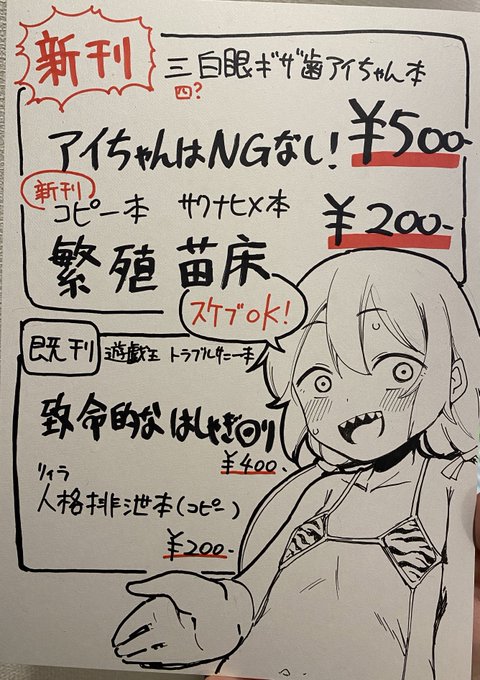 新刊
三白眼ギザ歯アイちゃん本
四?
アイちゃんはNGなし!
¥500-
新刊
コピー本 サクナヒメ本
¥200-
繁殖苗床
スケブOK!
既刊
遊戯王 トラブルサニー本
致命的なはしゃぎ回り
¥400-
リィラ
人格排泄本(コピー)
¥200-